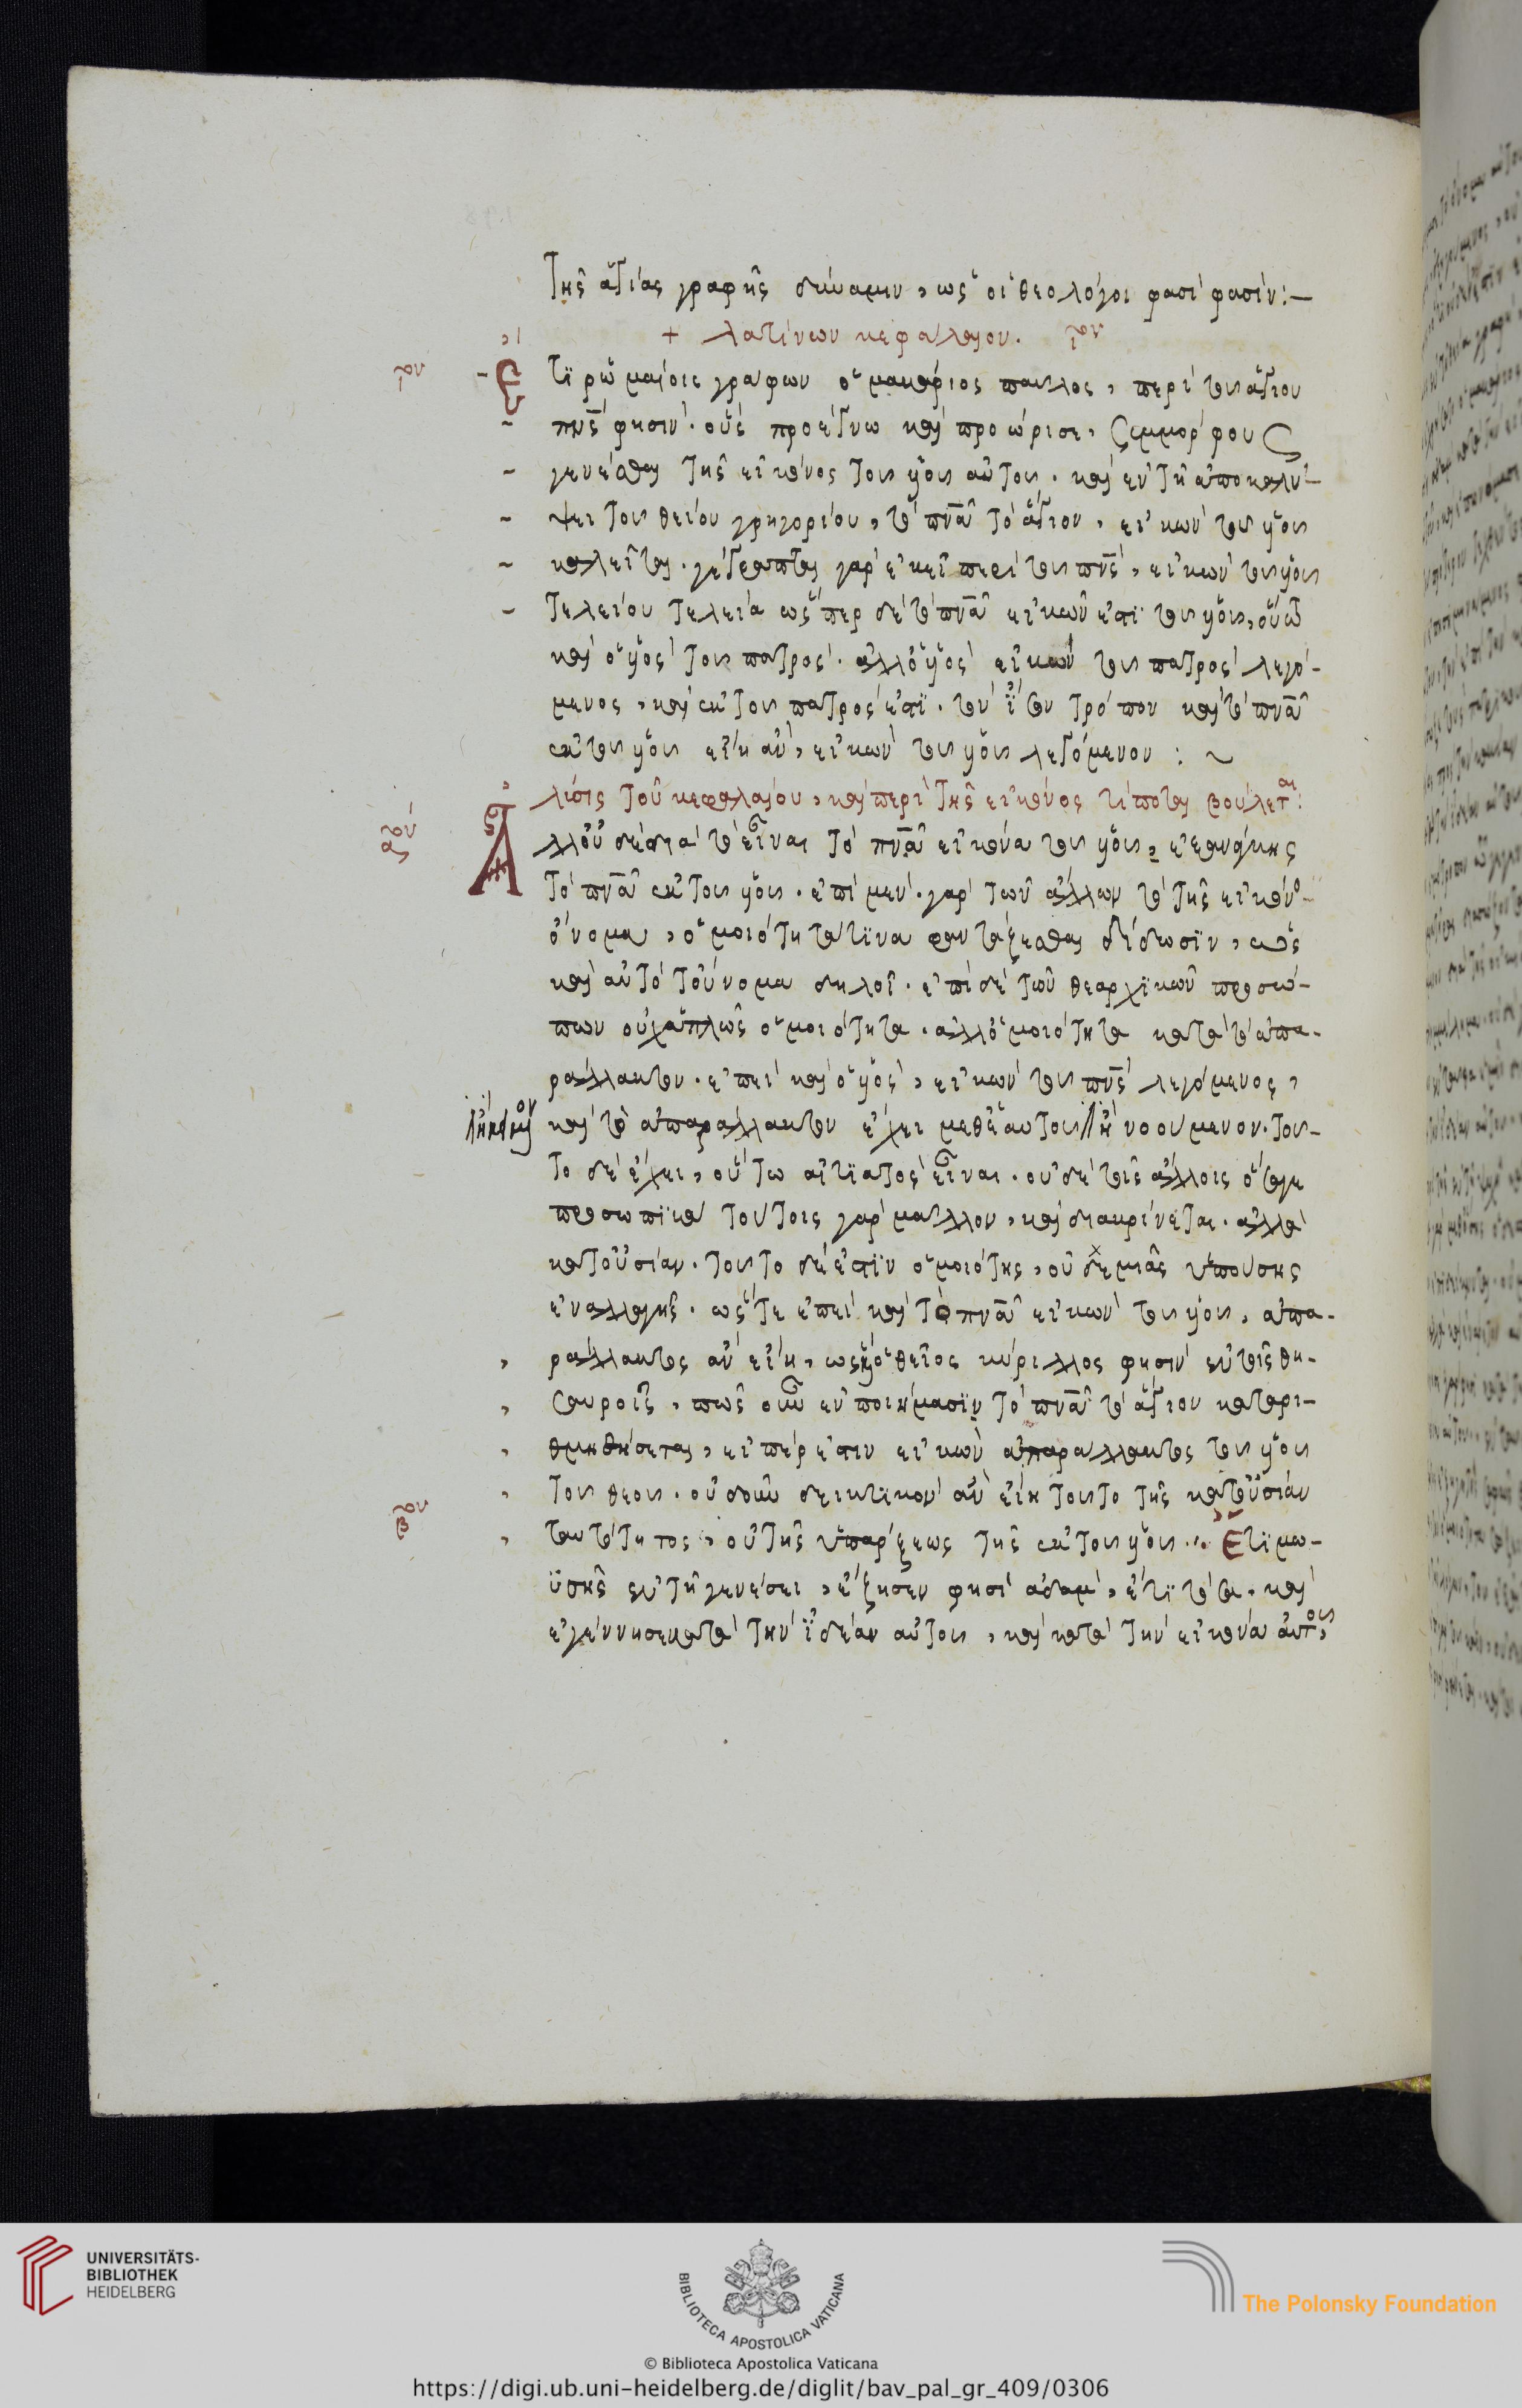 τῆς ἁγίας γραφῆς δύναμιν, ὡς οἱ θεολόγοι φασὶ φασίν:—
+ λατίνων κεφάλαιον. ιον
τι ῥωμαίοις γράφων ὁ μακάριος παῦλος, περὶ τοῦ ἁγίου
πνς φησίν. οὓς προέγνω καὶ προώρισε, συμμόρφους
γενέσθαι τῆς εἰκόνος τοῦ υἱοῦ αὐτοῦ. καὶ ἐν τῆ ἀποκαλύ-
ψει τοῦ θείου γρηγορίου, τὸ πνα τὸ ἅγιον, εἰκὼν τοῦ υἱοῦ
καλεῖται. γέγραπται γὰρ ἐκεῖ περὶ τοῦ πνς, εἰκὼν τοῦ υἱοῦ
τελείου τελεία ὥσπερ δὲ τὸ πνα εἰκών ἐστι τοῦ υἱοῦ, οὕτω
καὶ ὁ υἱὸς τοῦ πατρός. ἀλλ' ὁ υἱὸς εἰκὼν τοῦ πατρὸς λεγό-
μενος, καὶ ἐκ τοῦ πατρός ἐστι. τὸν ἴσον τρόπον καὶ τὸ πνα
ἐκ τοῦ υἱοῦ εἴη ἂν, εἰκὼν τοῦ υἱοῦ λεγόμενον : ~
λύσις τοῦ κεφαλαίου, καὶ περὶ τῆς εἰκόνος τί ποτε βούλεται:
Ἀλλ' οὐδὲ διὰ τὸ εἶναι τὸ πνα εἰκόνα τοῦ υἱοῦ, ἐξανάγκης
τὸ πνα ἐκ τοῦ υἱοῦ. ἐπὶ μὲν γὰρ τῶν ἄλλων τὸ τῆς εἰκόνο-
ὄνομα, ὁμοιότητα τινα φαντάζεσθαι δίδωσιν, ὡς
καὶ αὐτὸ τοὔνομα δηλοῖ. ἐπὶ δὲ τῶν θεαρχικῶν προσώ-
πων οὐχ ἁπλῶς ὁμοιότητα. ἀλλ' ὁμοιότητα κατὰ τὸ ἀπα-
ράλλακτον. ἐπεὶ καὶ ὁ υἱὸς, εἰκὼν τοῦ πνς λεγόμενος,
καὶ τὸ ἀπαράλλακτον ἔχει μεθ' ἑαυτοῦ νοούμενον. τοῦ-
το δὲ ἔχει, οὔ τω αἰτιατὸς εἶναι. οὐδὲ τοῖς ἄλλοις ὅσα γε
προσωπικὰ τούτοις γὰρ μᾶλλον, καὶ διακρίνεται. ἀλλὰ
κατ' οὐσίαν. τοῦτο δέ ἐστιν ὁμοιότης, οὐδεμιᾶς ὑπούσης
ἐναλλαγῆς. ὥστε ἐπεὶ καὶ τὸ πνα εἰκὼν τοῦ υἱοῦ, ἀπα-
ράλλακτος ἂν εἴη, ὡς καὶ ὁ θεῖος κύριλλος φησὶν ἐν τοῖς θη-
σαυροῖς, πῶς οὖν ἐν ποιήμασιν τὸ πνα τὸ ἅγιον καταρι-
θμηθήσεται, εἴπερ ἐστὶν εἰκὼν ἀπαράλλακτος τοῦ υἱοῦ
τοῦ θεοῦ. οὐδοῦν δεικτικὸν ἂν εἴη τοῦτο τῆς κατ' οὐσίαν
ταυτότητος, οὐ τῆς ὑπάρξεως τῆς ἐκ τοῦ υἱοῦ. Ἔτι μω-
ϋσῆς ἐν τῆ γενέσει, ἔζησεν φησὶ ἀδάμ, ἔτι τὰ σλ. καὶ
ἐγέννησε κατὰ τὴν ἰδέαν αὐτοῦ, καὶ κατὰ τὴν εἰκόνα αὐτοῦ,
UNIVERSITÄTS-
BIBLIOTHEK
HEIDELBERG
BIBLIOTECA APOSTOLICA VATICANA
The Polonsky Foundation
© Biblioteca Apostolica Vaticana
https://digi.ub.uni-heidelberg.de/diglit/bav_pal_gr_409/0306